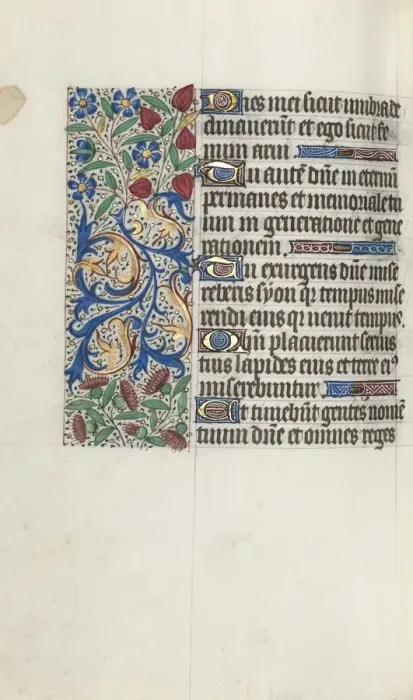 Dies mei sicut umbra de
clinaverūt et ego sicut fe
num arui.
Tu autē dñe in eternū
permanes et memoriale tu
um in generatione et gene
rationem.
Tu exurgens dñe mise
reberis syon qr tempus mise
rendi eius qr venit tempus.
Qm̄ placuerunt servis
tuis lapides eius et terre eiꝰ
miserebuntur
Et timebūt gentes nomē
tuum dñe et omnes reges